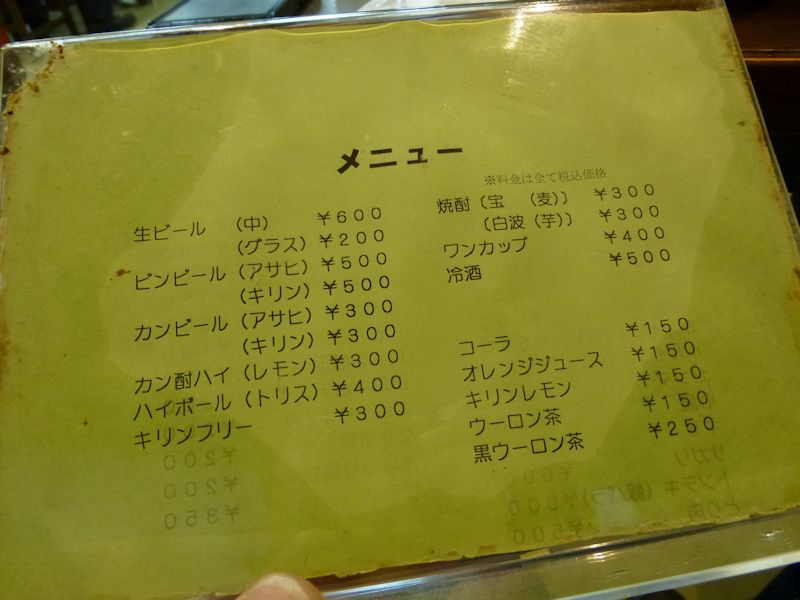 メニュー
※料金は全て税込価格
生ビール （中） ￥６００
（グラス） ￥２００
ビンビール （アサヒ） ￥５００
（キリン） ￥５００
カンビール （アサヒ） ￥３００
（キリン） ￥３００
カン酎ハイ （レモン） ￥３００
ハイボール （トリス） ￥４００
キリンフリー ￥３００
焼酎（宝 （麦）） ￥３００
（白波（芋）） ￥３００
ワンカップ ￥４００
冷酒 ￥５００
コーラ ￥１５０
オレンジジュース ￥１５０
キリンレモン ￥１５０
ウーロン茶 ￥１５０
黒ウーロン茶 ￥２５０
￥２００
￥２００
￥３５０
サガリ